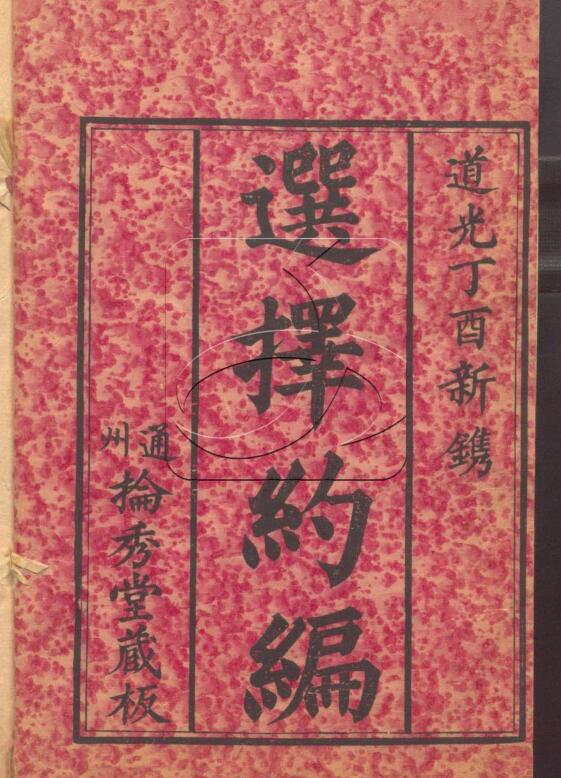 道光丁酉新鐫
選擇約編
通州掄秀堂藏板